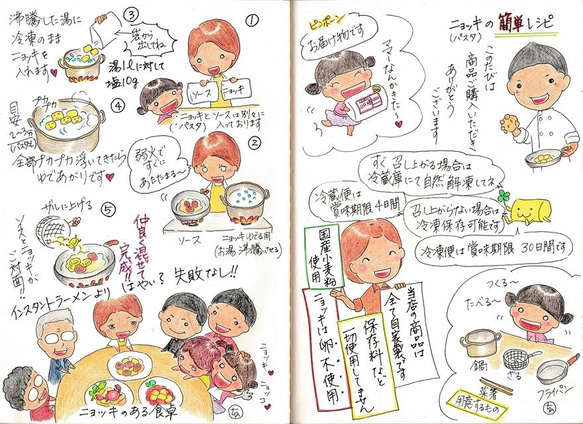 ニョッキの簡単レシピ
(パスタ)
このたびは
商品ご購入いただき
ありがとう
ございます
ピンポーン
お届け物です
ママーなんかきた〜♥
すぐ召し上がる場合は
冷蔵庫にて自然解凍してネ
召し上がらない場合は
冷凍保存可能です
冷蔵便は
賞味期限4日間
冷凍便は賞味期限30日間です
国産小麦粉
使用
当店の商品は
全て自家製です
保存料など
一切使用してません
ニョッキは卵不使用
つくる〜
たべる〜
鍋
ざる
フライパン
菜箸
用意するもの
①
ソース
ニョッキ
ニョッキとソースは別々に
(パスタ)
入っております
②
弱火で
すぐに
あたたまる〜
ソース
ニョッキゆでる用
(お湯沸騰させる)
③
沸騰した湯に
冷凍のまま
ニョッキを
入れます♥
袋から
出してね
湯1ℓに対して
塩10g
④
プカプカ
目安
2〜3分
全部プカプカ浮いてきたら
ゆであがりです♥
⑤
ザルに上げる
ソースとニョッキが
ご対面!!
仲良く混ぜて
完成!!
はやい?失敗なし!!
インスタントラーメンより
ニョッキ
ニョッコ
ニョッキのある食卓